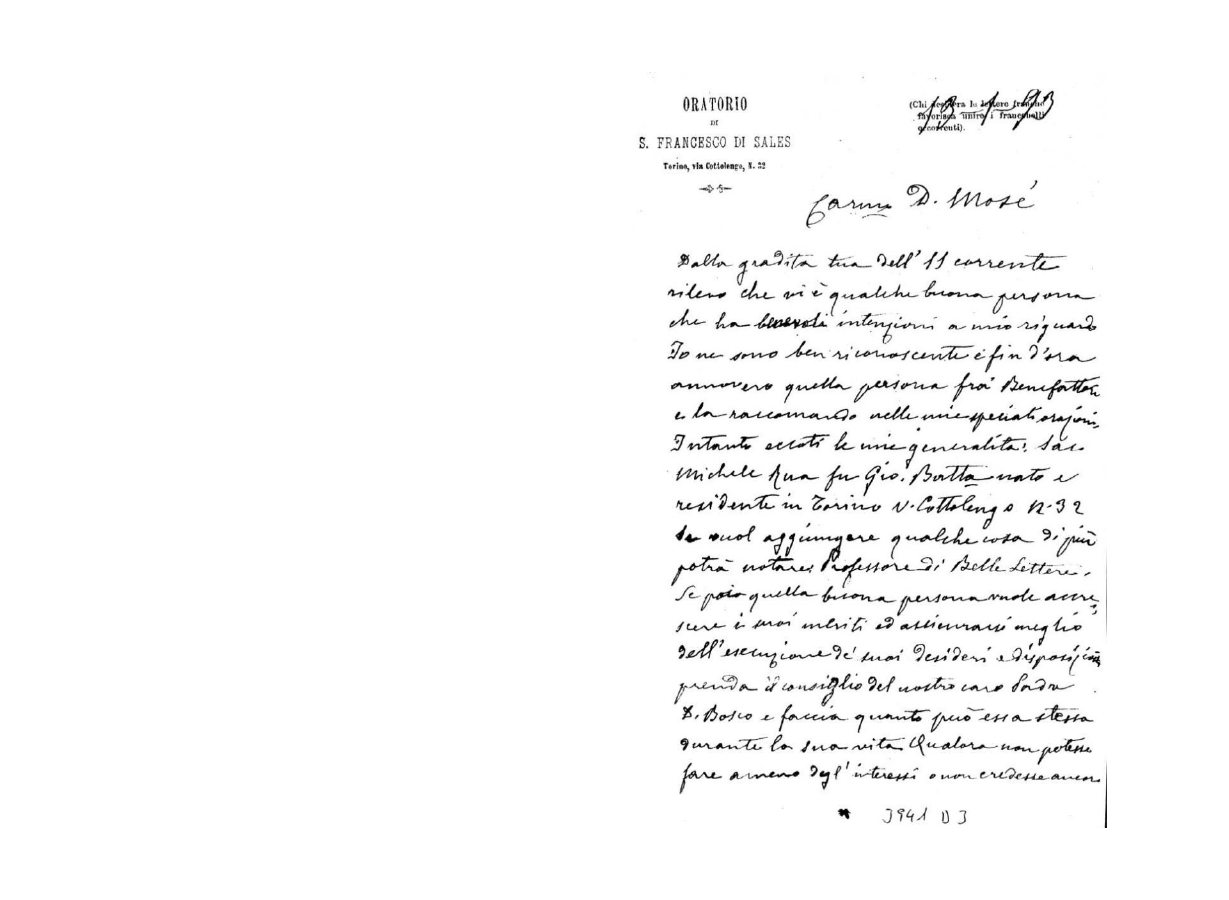 ORATORIO
DI
S. FRANCESCO DI SALES
Torino, via Cottolengo, N. 32
(Chi desidera la lettere franche
favorisca unire i francobolli
occorrenti).
13 - 1 - 93
Carmo D. Mosé
Dalla gradita tua dell' 11 corrente
rilevo che vi è qualche buona persona
che ha benevoli intenzioni a mio riguardo
Io ne sono ben riconoscente e fin d'ora
annovero quella persona fra i Benefattori
e la raccomando nelle mie speciali orazioni.
Intanto eccoti le mie generalità: Sac.
Michele Rua fu Gio. Batta nato e
residente in Torino V. Cottolengo N. 32
Se vuol aggiungere qualche cosa di più
potrà notare: Professore di Belle Lettere.
Se poi quella buona persona vuole accre
scere i suoi meriti ed assicurarsi meglio
dell'esecuzione de' suoi desideri e disposizioni
prenda il consiglio del nostro caro Padre
D. Bosco e faccia quanto può essa stessa
durante la sua vita Qualora non potesse
fare a meno degl' interessi o non credesse ancora
3941 D 3